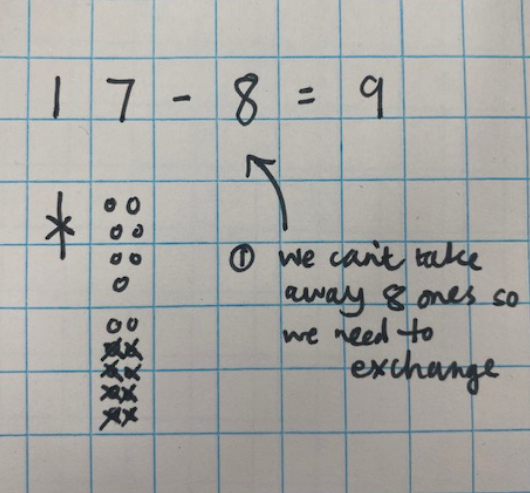 17 - 8 = 9
① we can't take
away 8 ones so
we need to
exchange